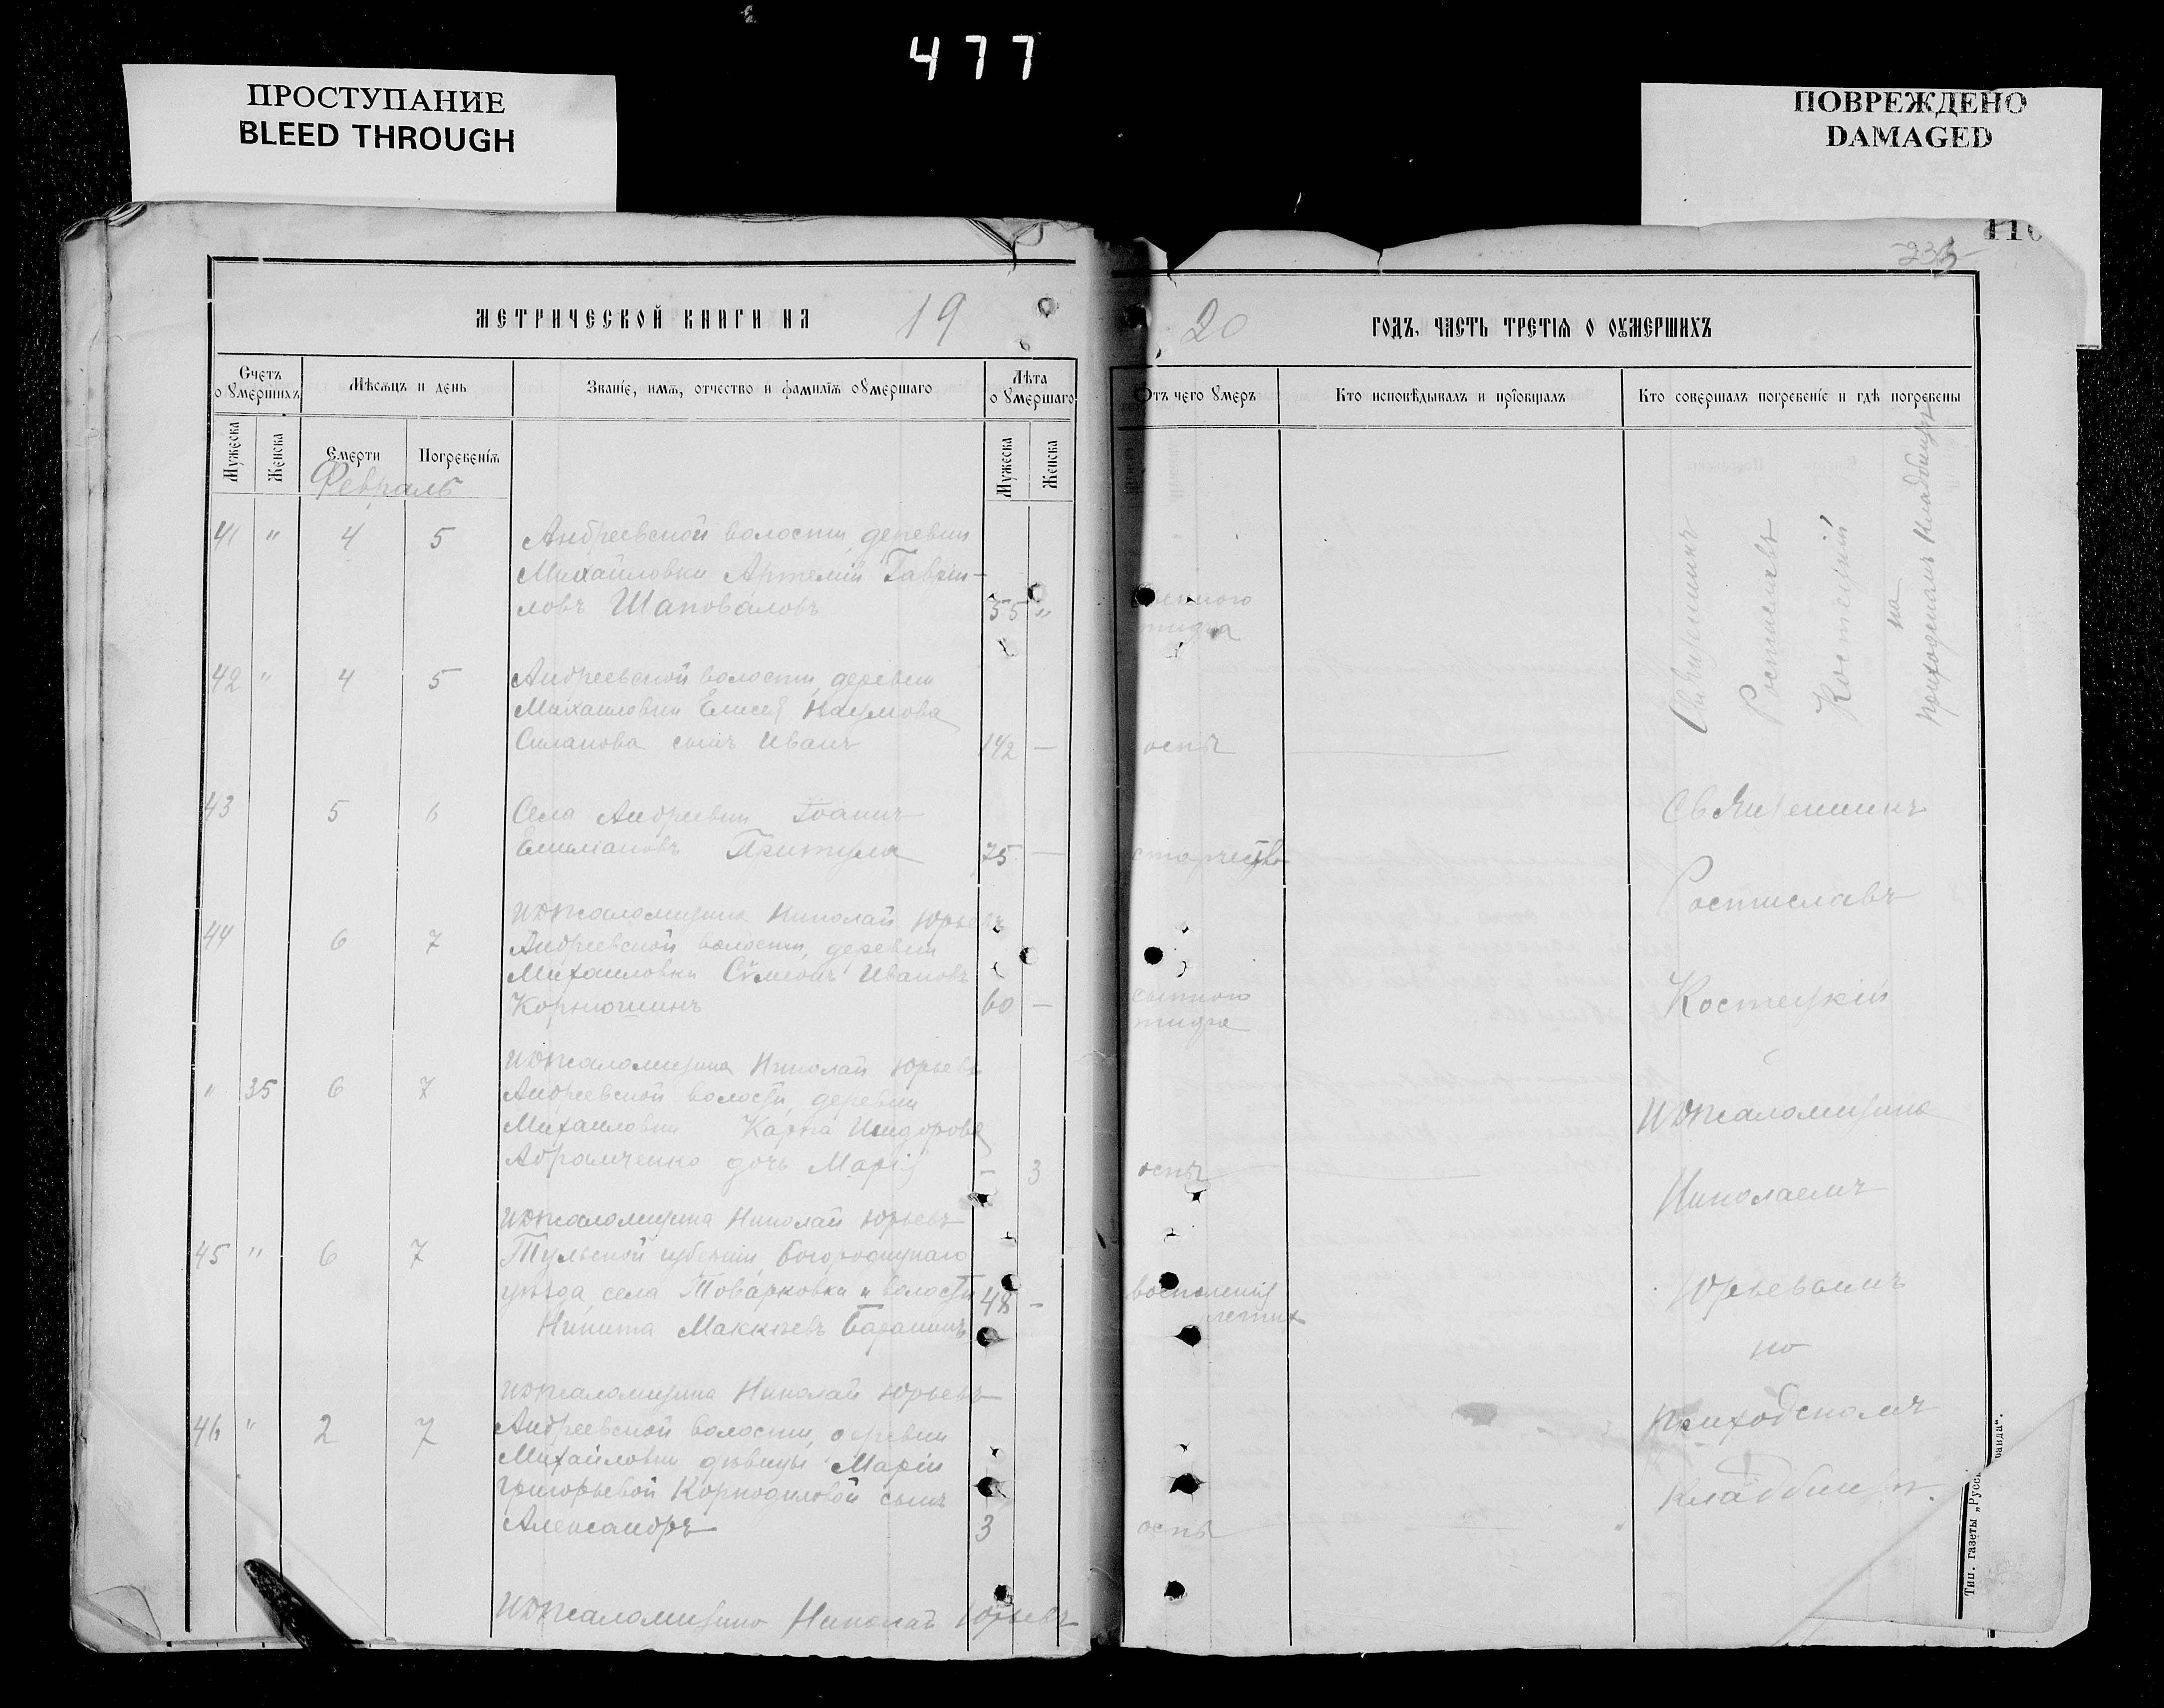 477
ПРОСТУПАНИЕ
BLEED THROUGH
ПОВРЕЖДЕНО
DAMAGED
110
233
МЕТРИЧЕСКОЙ КНИГИ НА 19
20 ГОДЪ, ЧАСТЬ ТРЕТІѦ О ОУМЕРШИХЪ
Счетъ
о Ꙋмершихъ
Мѣсѧцъ и день
Званіе, имѧ, отчество и фамиліѧ оꙊмершаго
Лѣта
оꙊмершаго
Отъ чего Ꙋмеръ
Кто исповѣдывалъ и пріобщалъ
Кто совершалъ погребеніе и гдѣ погребены
Мужеска
Женска
Смерти
Погребеніѧ
Мужеска
Женска
Февраль
41 " 4 5 Андреевской волости, деревни
Михайловки Артемій Гаврiи-
ловъ Шаповаловъ 55 "
тифа
Священникъ
Ростиславъ
Костецкій
на
приходскомъ кладбищѣ
42 " 4 5 Андреевской волости, деревни
Михайловки Елисея Наумова
сынъ Иванъ 1 1/2 — оспы
43 5 6 Села Андреевки Іоаннъ
Емиліановъ Притула 75 —
Священникъ
И д псаломщика Николай Юрьевъ
44 6 7 Андреевской волости, деревни
Михайловки Сѵмеонъ Ивановъ
60 — сыпного
тифа
Ростиславъ
Костецкій
И д псаломщика Николай Юрьевъ
" 35 6 7 Андреевской волости, деревни
Михайловки Карпа Исидорова
Абрамченко дочь Марія — 3 оспы
И д псаломщика
Николаемъ
И д псаломщика Николай Юрьевъ
45 " 6 7 Тульской губерніи, Богородицкаго
уѣзда, села Товарковки и волости 48 — воспаленія
легких
Никита Маккѣевъ Баранинъ
Юрьевымъ
на
И д псаломщика Николай Юрьевъ
46 " 2 7 Андреевской волости, деревни
Михайловки дѣвицы Маріи
Григорьевой сынъ
Александръ 3 оспы
приходскомъ
кладбищѣ.
И д псаломщика Николай Юрьевъ
Тип. газеты „Русс
равда“.